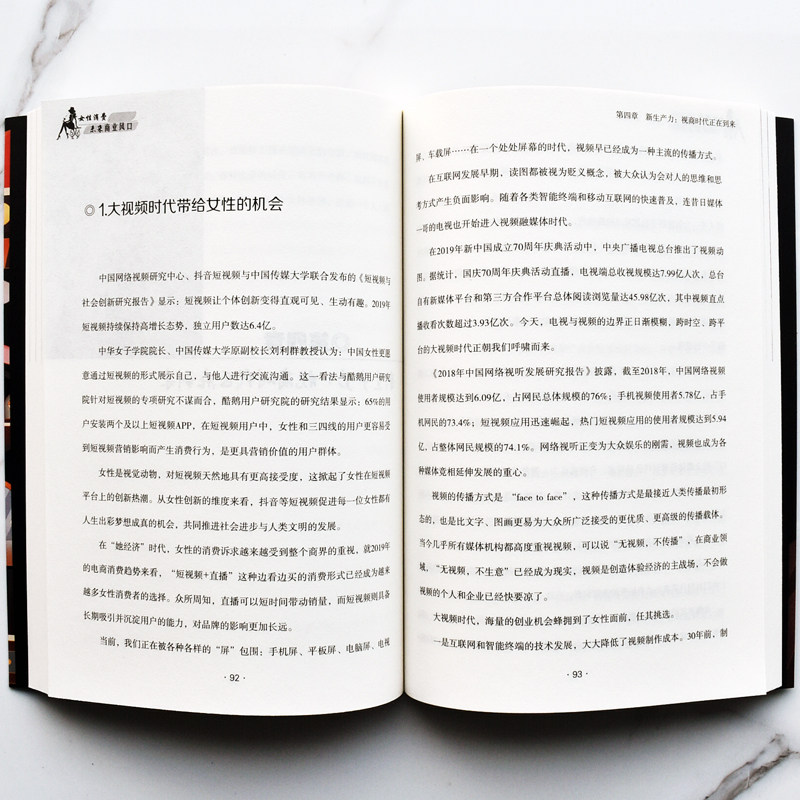 女性消费
未来商业风口
◎ 1.大视频时代带给女性的机会
中国网络视频研究中心、抖音短视频与中国传媒大学联合发布的《短视频与
社会创新研究报告》显示：短视频让个体创新变得直观可见、生动有趣。2019年
短视频持续保持高增长态势，独立用户数达6.4亿。
中华女子学院院长、中国传媒大学原副校长刘利群教授认为：中国女性更愿
意通过短视频的形式展示自己，与他人进行交流沟通。这一看法与酷鹅用户研究
院针对短视频的专项研究不谋而合，酷鹅用户研究院的研究结果显示：65%的用
户安装两个及以上短视频APP，在短视频用户中，女性和三四线的用户更容易受
到短视频营销影响而产生消费行为，是更具营销价值的用户群体。
女性是视觉动物，对短视频天然地具有更高接受度，这掀起了女性在短视频
平台上的创新热潮。从女性创新的维度来看，抖音等短视频促进每一位女性都有
人生出彩梦想成真的机会，共同推进社会进步与人类文明的发展。
在“她经济”时代，女性的消费诉求越来越受到整个商界的重视，就2019年
的电商消费趋势来看，“短视频+直播”这种边看边买的消费形式已经成为越来
越多女性消费者的选择。众所周知，直播可以短时间带动销量，而短视频则具备
长期吸引并沉淀用户的能力，对品牌的影响更加长远。
当前，我们正在被各种各样的“屏”包围：手机屏、平板屏、电脑屏、电视
· 92 ·
第四章 新生产力：视商时代正在到来
屏、车载屏……在一个处处屏幕的时代，视频早已经成为一种主流的传播方式。
在互联网发展早期，读图都被视为贬义概念，被大众认为会对人的思维和思
考方式产生负面影响。随着各类智能终端和移动互联网的快速普及，连昔日媒体
一哥的电视也开始进入视频融媒体时代。
在2019年新中国成立70周年庆典活动中，中央广播电视总台推出了视频动
图。据统计，国庆70周年庆典活动直播，电视端总收视规模达7.99亿人次，总台
自有新媒体平台和第三方合作平台总体阅读浏览量达45.98亿次，其中视频直点
播收看次数超过3.93亿次。今天，电视与视频的边界正日渐模糊，跨时空、跨平
台的大视频时代正朝我们呼啸而来。
《2018年中国网络视听发展研究报告》披露，截至2018年，中国网络视频
使用者规模达到6.09亿，占网民总体规模的76%；手机视频使用者5.78亿，占手
机网民的73.4%；短视频应用迅速崛起，热门短视频应用的使用者规模达到5.94
亿，占整体网民规模的74.1%。网络视听正变为大众娱乐的刚需，视频也成为各
种媒体竞相延伸发展的重心。
视频的传播方式是“face to face”，这种传播方式是最接近人类传播最初形
态的，也是比文字、图画更易为大众所广泛接受的更优质、更高级的传播载体。
当今几乎所有媒体机构都高度重视视频，可以说“无视频，不传播”，在商业领
域，“无视频，不生意”已经成为现实，视频是创造体验经济的主战场，不会做
视频的个人和企业已经快要凉了。
大视频时代，海量的创业机会蜂拥到了女性面前，任其挑选。
一是互联网和智能终端的技术发展，大大降低了视频制作成本。30年前，制
· 93 ·